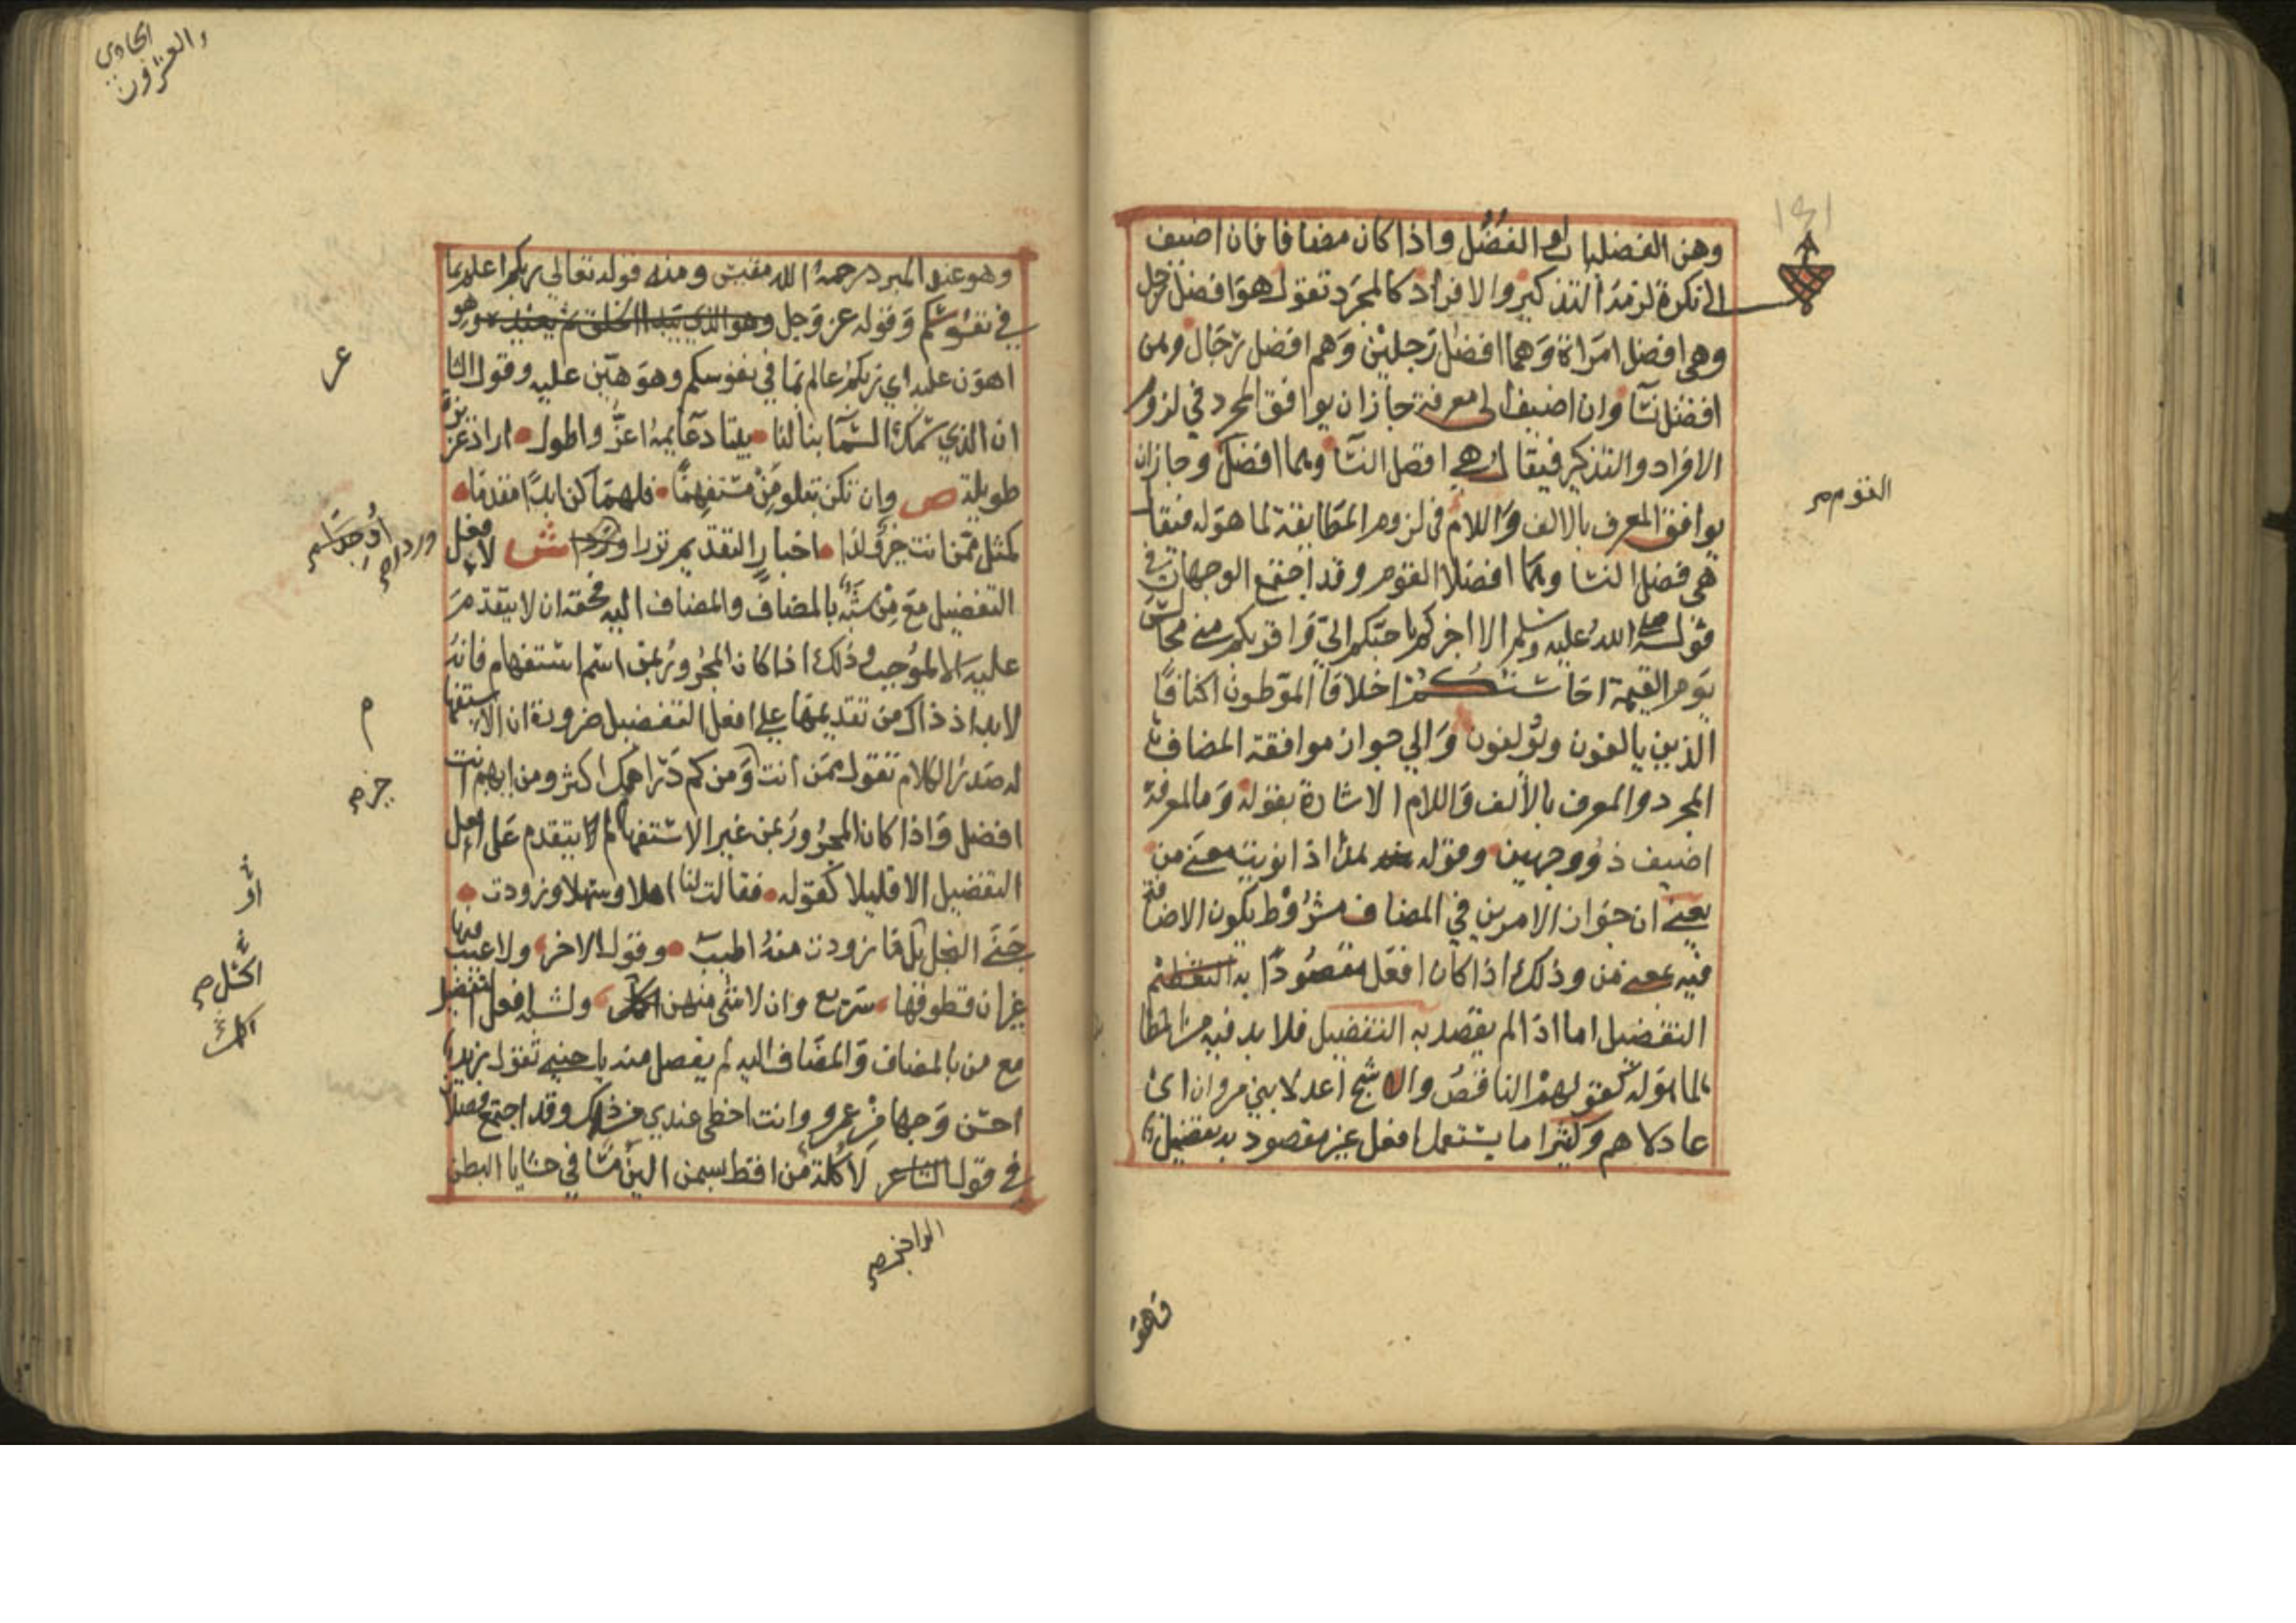 وهن الفضليات او الفضل واذا كان مضافا فان اضيف
الى نكرة لزمه التذكير والافراد كالمجرد تقول هو افضل رجل
وهي افضل امراة وهما افضل رجلين وهم افضل رجال وهن
افضل نسا وان اضيف الى معرفة جاز ان يوافق المجرد في لزوم
الافراد والتذكير فيقال هي افضل النسا وهما افضل وجاز ان
القوم صح
يوافق المعرف بالالف واللام في لزوم المطابقة لما هو له فيقال
هي فضلى النسا وهما افضلا القوم وقد اجتمع الوجهان في
قوله صلى الله عليه وسلم الا اخبركم باحبكم الي واقربكم مني مجالس
يوم القيمة احاسنكم اخلاقا الموطون اكنافا
الذين يالفون ويؤلفون والي جواز موافقة المضاف
المجرد والمعرف بالألف واللام الاشارة بقوله وما لمعرفة
اضيف ذو وجهين وقوله هذا اذا نويت معنى من
يعني ان جواز الامرين في المضاف مشروط بكون الاضافة
فيه بمعنى من وذلك اذا كان افعل مقصودا به
التفضيل اما اذا لم يقصد به التفضيل فلا بد فيه من المطا
لما هو له كقولهم الناقص والاشج اعدلا بني مروان اى
عادلاهم وكثيرا ما يستعمل افعل غير مقصود به تفضيل
فاهو
الحادي
والعشرون
وهو عند المبرد رحمه الله مقيس ومنه قوله تعالى ربكم اعلم بما
في نفوسكم وقوله عز وجل وهو الذي يبدا الخلق ثم يعيده وهو
اهون عليه اي ربكم عالم بما في نفوسكم وهو هين عليه وقول الشا
عر
ان الذي سمك السما بنا لنا بيتا دعايمه اعز واطول اراد عزيزة
طويلة ص وان تكن بتلو من مستفهما فلهما كن ابدا مقدما
كمثل ممن انت خير ولدا اخبار التقديم نزرا ش لافعل
وردا صح
التفضيل مع من شبه بالمضاف والمضاف اليه فحقه ان لا يتقدم
عليه الا لموجب وذلك اذا كان المجرور بمن اسم استفهام فانه
لا بد اذ ذاك من تقديمهما على افعل التفضيل ضرورة ان الاستفها
م
له صدر الكلام تقول ممن انت ومن كم دراهمك اكثر ومن ايهم انت
خير صح
افضل واذا كان المجرور بمن غير الاستفهام لا يتقدم على افعل
التفضيل الا قليلا كقوله فقالت لنا اهلا وسهلا وزودت
جنى النحل بل ما زودت منه اطيب وقول الاخر ولا عيب فيها
غير ان قطوفها سريع وان لا شى منهن ولشبه افعل التفضيل
اكسل صح
مع من بالمضاف والمضاف اليه لم يفصل منه باجنبي تقول زيد
احسن وجها من عمرو وانت احظى عندي من ذلك وقد اجتمع فصلان
في قول الراجز صح لأكلة من اقط بسمن الين مسا في حشايا البطن